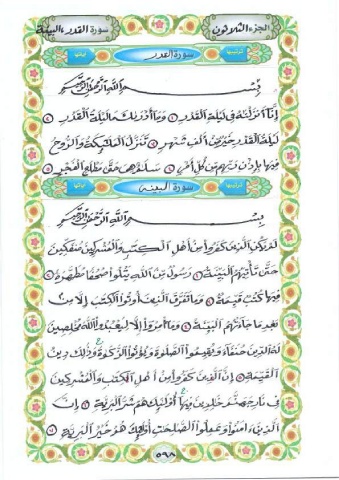 سورة القدر، البينة
الجزء الثلاثون
سورة القدر
بسم الله الرحمن الرحيم
إنا أنزلنه في ليلة القدر ۝ وما أدرىك ما ليلة القدر ۝
ليلة القدر خير من ألف شهر ۝ تنزل الملئكة والروح
فيها بإذن ربهم من كل أمر ۝ سلم هي حتى مطلع الفجر ۝
سورة البينة
بسم الله الرحمن الرحيم
لم يكن الذين كفروا من أهل الكتب والمشركين منفكين
حتى تأتيهم البينة ۝ رسول من الله يتلوا صحفا مطهرة ۝
فيها كتب قيمة ۝ وما تفرق الذين أوتوا الكتب إلا من
بعد ما جاءتهم البينة ۝ وما أمروا إلا ليعبدوا الله مخلصين
له الدين حنفاء ويقيموا الصلوة ويؤتوا الزكوة وذلك دين
القيمة ۝ إن الذين كفروا من أهل الكتب والمشركين
في نار جهنم خلدين فيها أولئك هم شر البرية ۝ إن
الذين ءامنوا وعملوا الصلحت أولئك هم خير البرية ۝
٥٩٨